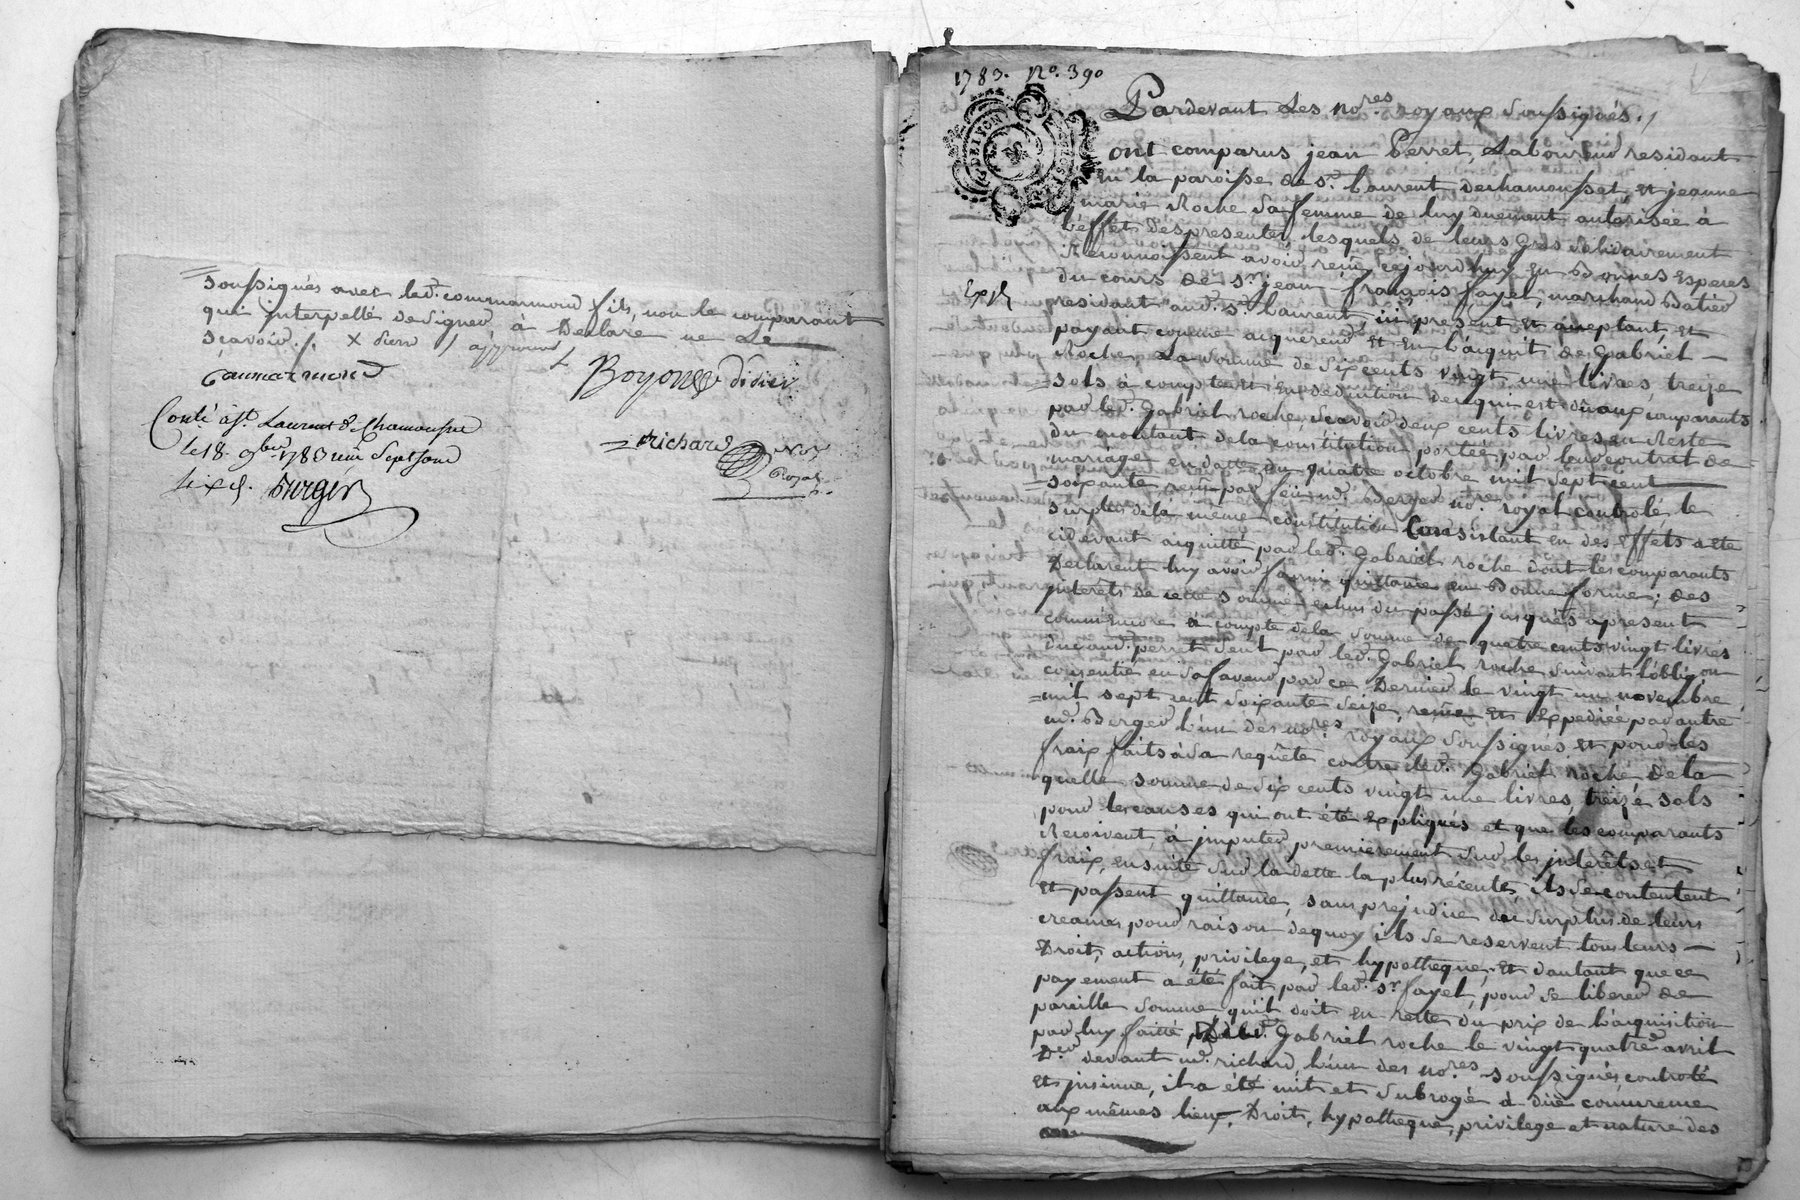 soussignés avec led. commarmond fils, non le comparant
qui interpellé de signer à Declaré ne Le
sçavoir ./. x sieur / approuvé
Commarmond
Boyer Didier
Conté à St. Laurent de Chamousset
le 18. 9bre 1783
Richard
Nore
Royal
Burger
1783. No. 390
DE LYON
Pardevant Les nores. royaux soussignés. /
ont comparus jean Perret, Laboureur residant
En la paroisse de st. Laurent dechamousset, et jeanne
marie Roche sa femme de luy duement autorisée à
L'effet des presentes, lesquels de leurs grés solidairement
Reconnoissent avoir reçu cejourd'huy en Bonnes Especes
du cours de sr. jean françois fayel, marchand Batier
Exp.
residant aud. st. Laurent ici present et aceptant, et
payant comme acquereur et en L'aquit de Gabriel
Roche La somme de six cents vingt une livres, treize
sols à compte et en deduction de ce qui est dû aux comparants
par led. Gabriel roche, sçavoir deux cents livres en Reste
du montant dela constitution portée par leur contrat de
mariage en datte du quatre octobre mil sept cent
soixante, reçu par feu me. Berger nore. royal controlé, le
surplus dela même constitution Consistant en des effets a été
cidevant aquitté par led. Gabriel roche dont les comparants
Declarent luy avoir fourni quittance en Bonne forme; des
interêts de cette somme echus du passé jusqu'à present
à compte dela somme de quatre cents vingt livres
due aud. perret seul par led. Gabriel roche suivant l'obligon
consentie en sa faveur par ce Dernier le vingt un novembre
mil sept cent soixante seize, reçue et expediée par autre
me. Berger l'un des nores. royaux soussignés et pour les
fraix faits à sa requête contre led. Gabriel roche de la
quelle somme de six cents vingt une livres, treize sols
pour les causes qui ont été expliqués et que les comparants
Reçoivent, à imputer premierement sur les interêts et
fraix, ensuite sur la dette la plus récente, ils se contentent
et passent quittance, sans prejudice du surplus de leurs
creances pour raison dequoy ils se reservent tous leurs
Droit, actions, privilege, et hypotheque. Et d'autant que ce
payement a été fait par led. sr fayel, pour se liberer de
pareille somme qu'il doit en reste du prix de L'aquisition
par luy faitte, dud. Gabriel roche le vingt quatre avril
Der. devant me. richard, l'un des nores. soussignés controlé
et insinué, il a été mit et subrogé à dûe concurrence
aux mêmes lieux, Droit, hypotheque, privilege et nature des